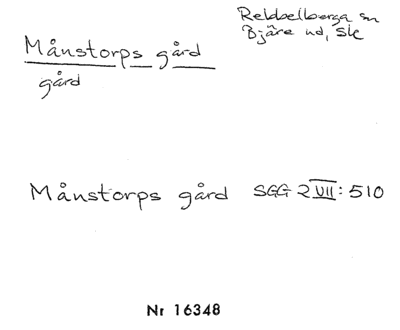 Rebbelberga sn
Bjäre hd, Sk
Månstorps gård
gård
Månstorps gård SGG 2 VII: 510
Nr 16348